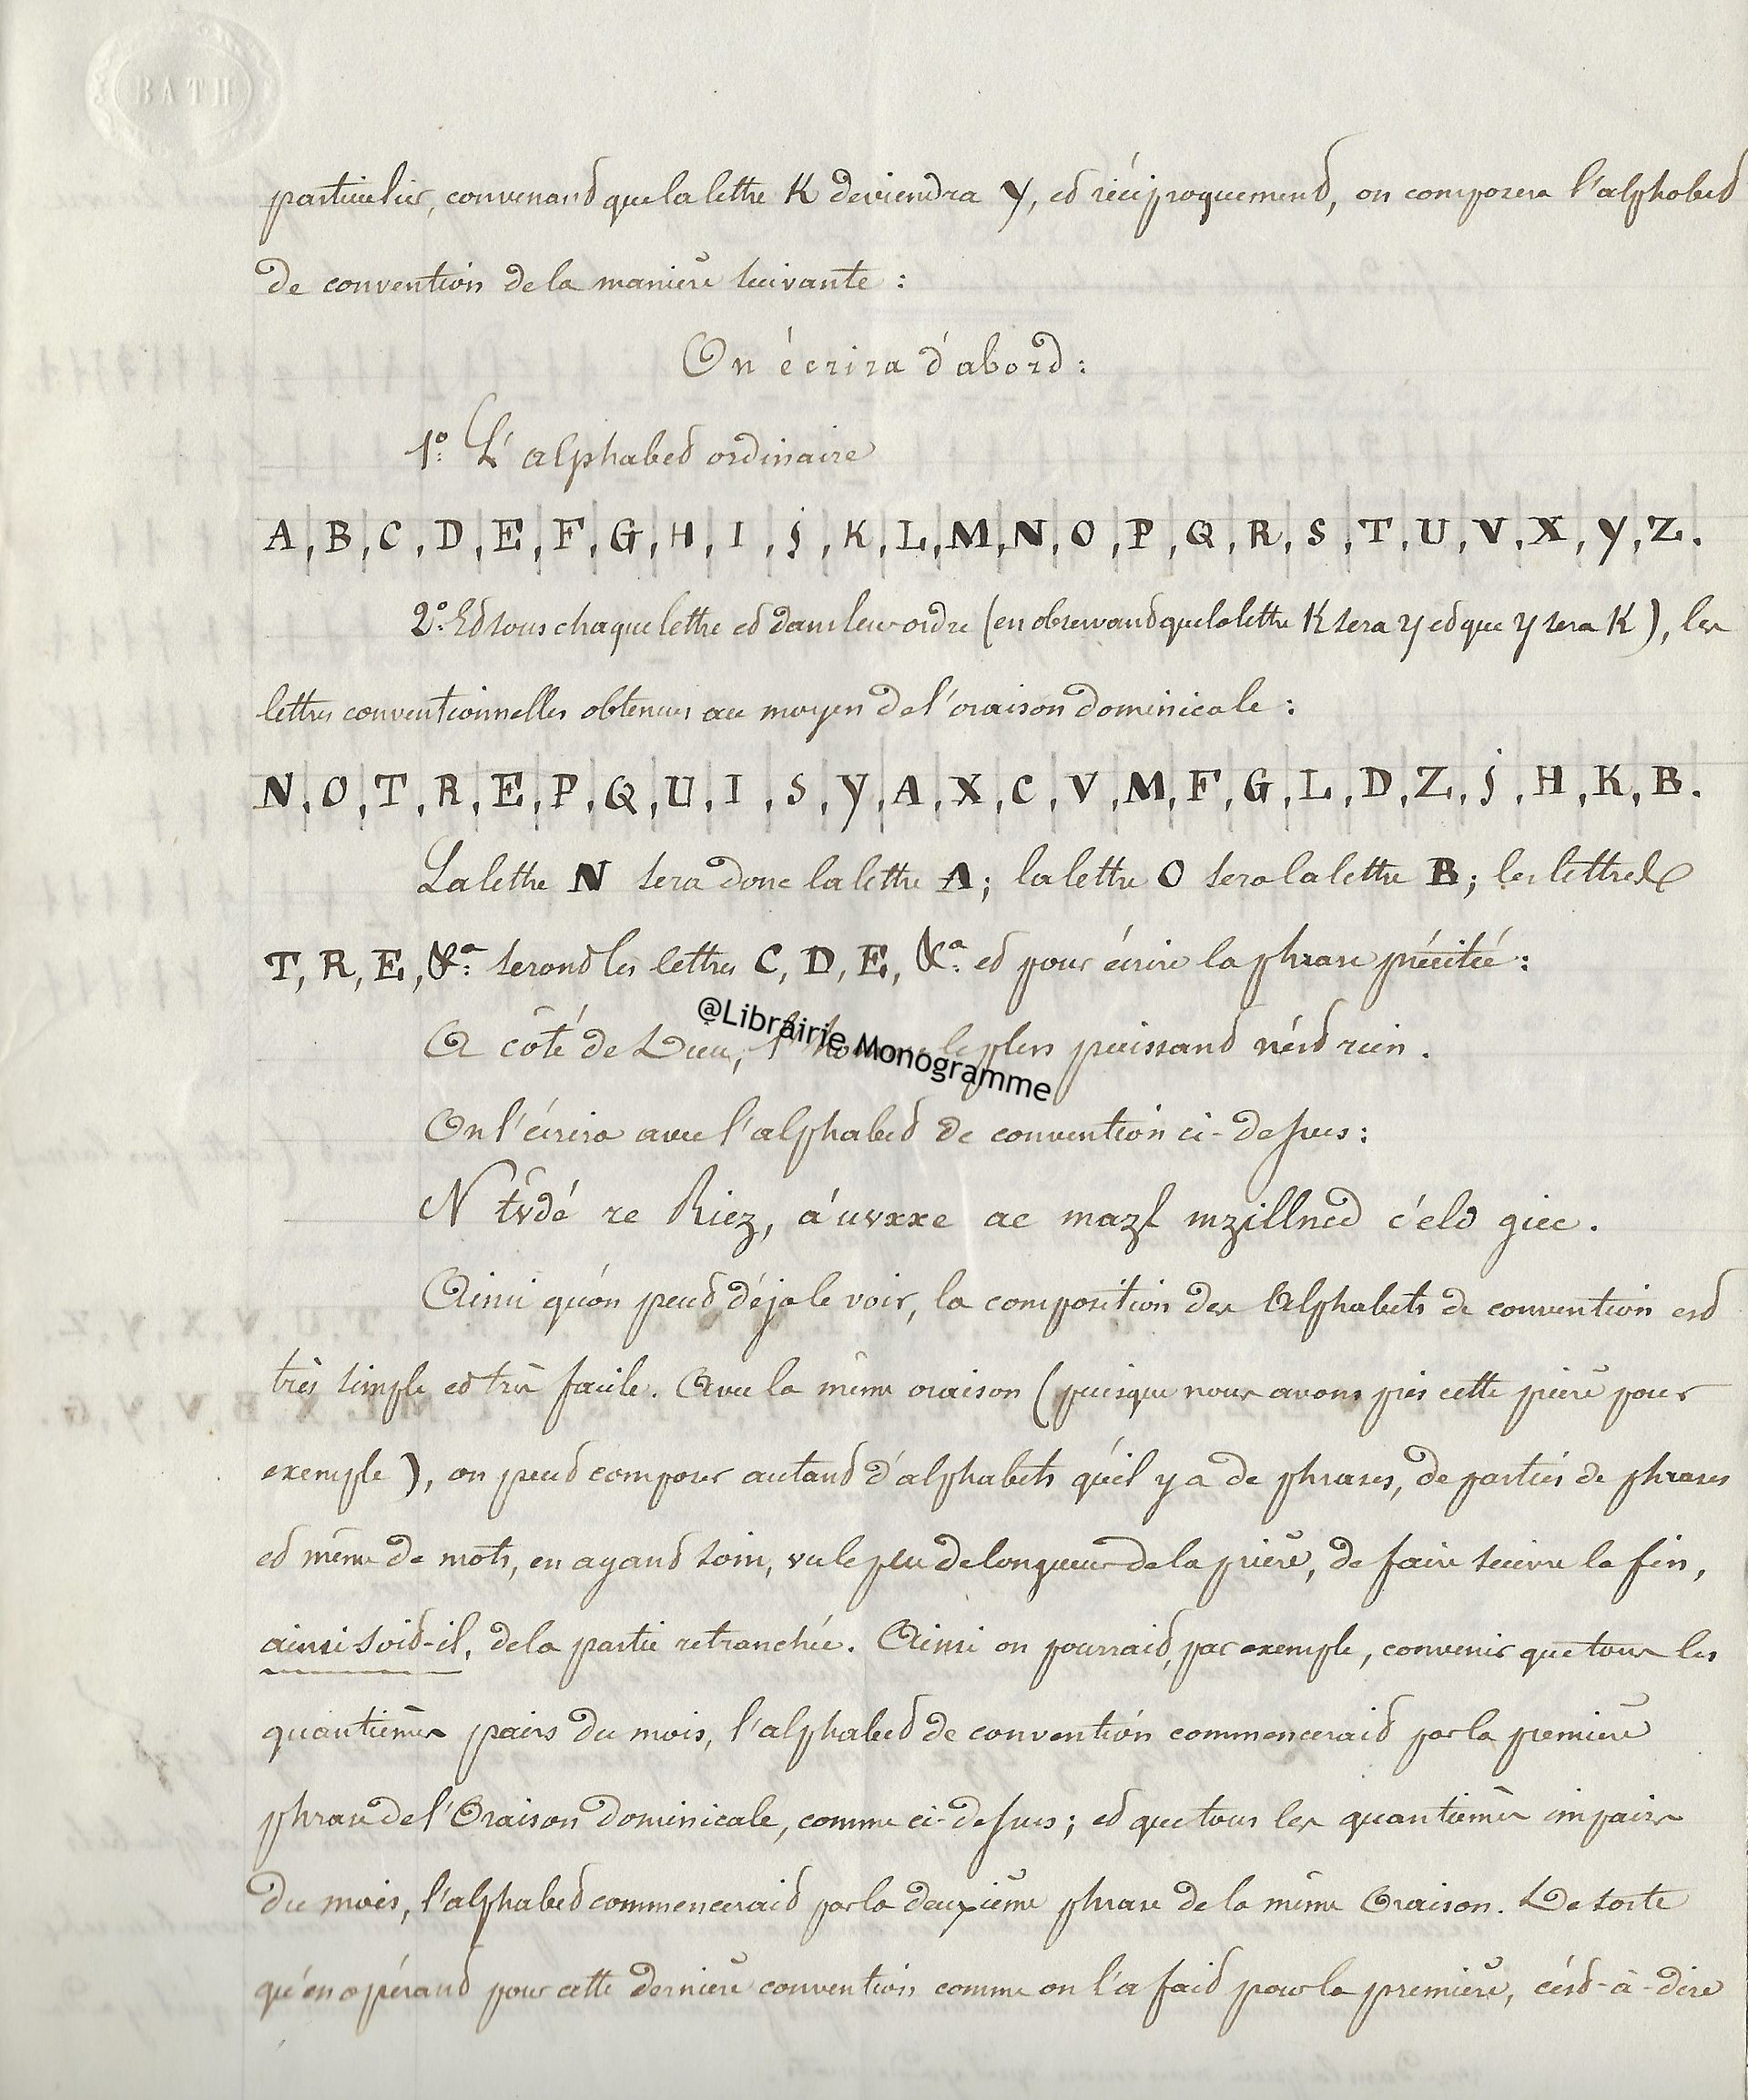 BATH
particulier, convenant que la lettre K deviendra Y, et réciproquement, on composera l'alphabet
de convention de la manière suivante :
On écrira d'abord :
1º. L'alphabet ordinaire
A, B, C, D, E, F, G, H, I, J, K, L, M, N, O, P, Q, R, S, T, U, V, X, Y, Z.
2º. Et sous chaque lettre et dans leur ordre (en observant que la lettre K sera y et que y sera K), les
lettres conventionnelles obtenues au moyen de l'oraison dominicale :
N, O, T, R, E, P, Q, U, I, S, Y, A, X, C, V, M, F, G, L, D, Z, J, H, K, B.
La lettre N sera donc la lettre A; la lettre O sera la lettre B; les lettres
T, R, E, &a. seront les lettres C, D, E, &a. et pour écrire la phrase précitée :
A côté de Dieu, l'homme le plus puissant n'est rien.
@Librairie Monogramme
On l'écrira avec l'alphabet de convention ci-dessus :
N tvdé re Riez, a'uvxxe ae mazl mzillncd c'eld giec.
Ainsi qu'on peut déjà le voir, la composition des Alphabets de convention est
très simple et très facile. Avec la même oraison (puisque nous avons pris cette prière pour
exemple), on peut composer autant d'alphabets qu'il y a de phrases, de parties de phrases
et même de mots, en ayant soin, vu le peu de longueur de la prière, de faire suivre la fin,
ainsi soit-il, de la partie retranchée. Ainsi on pourrait, par exemple, convenir que tous les
quantièmes pairs du mois, l'alphabet de convention commencerait par la première
phrase de l'Oraison dominicale, comme ci-dessus; et que tous les quantièmes impairs
du mois, l'alphabet commencerait par la deuxième phrase de la même Oraison. De sorte
qu'en opérant pour cette dernière convention comme on l'a fait pour la première, c'est-à-dire